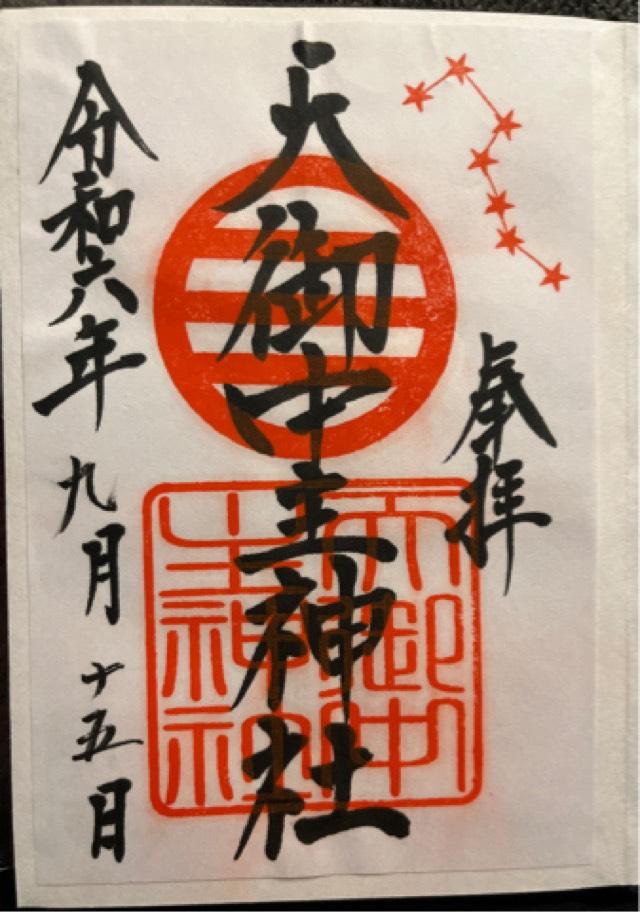 奉拝
天御中主神社
令和六年九月十五日
天御中
主神社